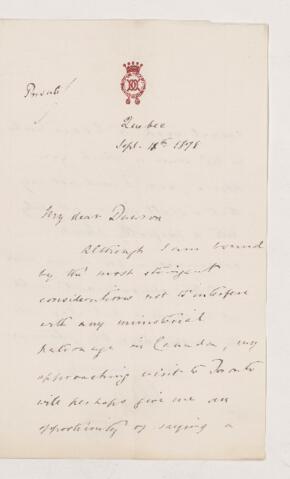 Private
Quebec
Sept. 18th 1878
My dear Dawson
Although I am bound
by the most stringent
considerations not to interfere
with any ministerial
patronage in Canada, my
approaching visit to Toronto
will perhaps give me an
opportunity of saying a